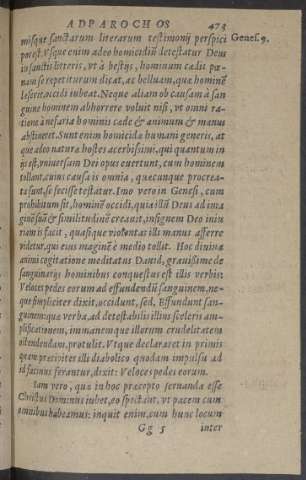 AD PAROCHOS 473
misque sanctarum literarum testimonij perspici Genes. 9.
potest. Vsque enim adeo homicidiũ detestatur Deus
in sanctis litteris, vt à bestijs, hominum cædis pœ-
nam se repetiturum dicat, ac belluam, quæ hominẽ
leserit, occidi iubeat. Neque aliam ob causam à san
guine hominem abhorrere voluit nisi, vt omni ra-
tione à nefaria hominis cæde & animum & manus
abstineret. Sunt enim homicidæ humani generis, at
que adeo naturæ hostes acerbissimi, qui quantum in
ijs est, vniuersum Dei opus euertunt, cum hominem
tollant, cuius causa is omnia, quæcunque procrea-
ta sunt, se fecisse testatur. Imo vero in Genesi, cum
prohibitum sit, hominẽ occidi, quia illũ Deus ad ima
ginẽ suã & similitudinẽ creauit, insignem Deo iniu
riam is facit, quasique violentas illi manus afferre
videtur, qui eius imaginẽ è medio tollit. Hoc diuina
animi cogitatione meditatus Dauid, grauissime de
sanguinarijs hominibus conquestus est illis verbis:
Veloces pedes eorum ad effundendũ sanguinem, ne-
que simpliciter dixit, occidunt, sed, Effundunt san-
guinem: quæ verba, ad detestabilis illius sceleris am-
plificationem, immanemque illorum crudelitatem
ostendendam, protulit. Vtque declararet in primis
quam præcipites illi diabolico quodam impulsu ad
id facinus ferantur, dixit: Veloces pedes eorum.
Iam vero, quæ in hoc præcepto seruanda esse
Christus Dominus iubet, eo spectant, vt pacem cum
omnibus habeamus: inquit enim, cum hunc locum
Gg 5 inter